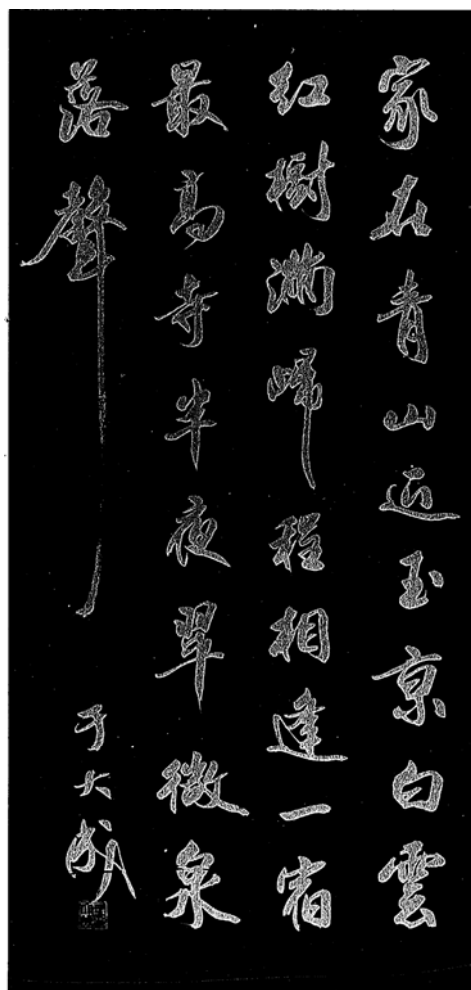 家在青山近玉京白雲
紅樹滿歸程相逢一宿
最高寺半夜翠微泉
落聲
于大成